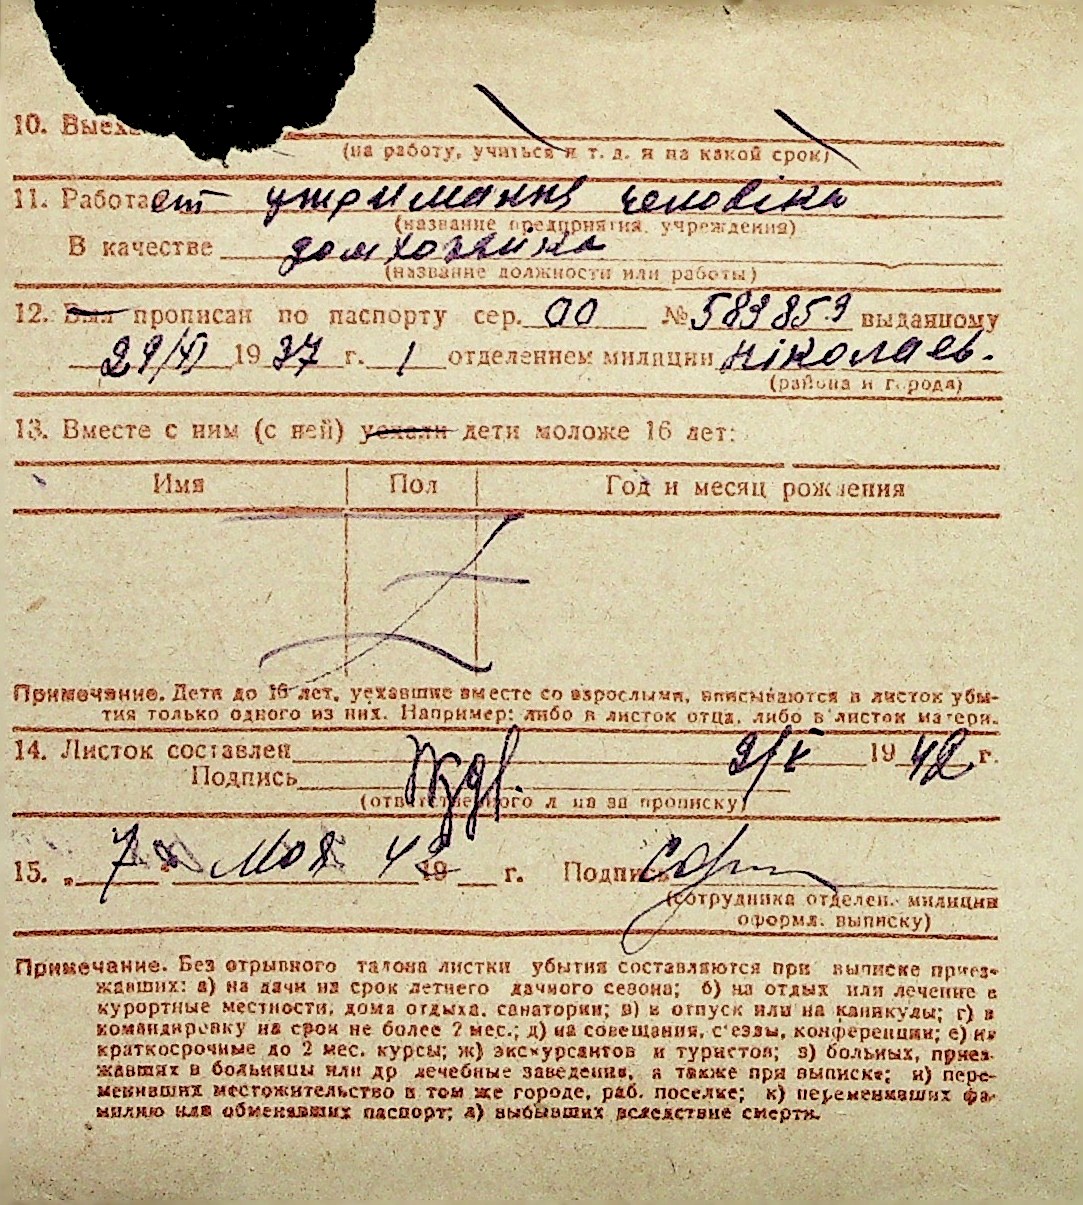 10. Выеха
(на работу, учиться и т. д. и на какой срок)
11. Работает утримання человіка
(название предприятия, учреждения)
В качестве домхозяйка
(название должности или работы)
12. Был прописан по паспорту сер. ОО № 583853 выданному
29/XI 1937 г. 1 отделением милиции Ніколаев.
(района и города)
13. Вместе с ним (с ней) уехали дети моложе 16 лет:
Имя Пол Год и месяц рождения
Примечание. Дети до 16 лет, уехавшие вместе со взрослыми, вписываются в листок убы-
тия только одного из них. Например: либо в листок отца, либо в листок матери.
14. Листок составлен 2/V 1942 г.
Подпись
(ответственного л на за прописку)
15. „ 7 " мая 42 19 г. Подпись
(сотрудника отделен. милиции
оформл. выписку)
Примечание. Без отрывного талона листки убытия составляются при выписке приез-
жавших: а) на дачи на срок летнего дачного сезона; б) на отдых или лечение в
курортные местности, дома отдыха, санатории; в) в отпуск или на каникулы; г) в
командировку на срок не более 2 мес.; д) на совещания, с'езды, конференции; е) на
краткосрочные до 2 мес. курсы; ж) экскурсантов и туристов; з) больных, приез-
жавших в больницы или др лечебные заведения, а также при выписке; и) пере-
менивших местожительство в том же городе, раб. поселке; к) переменивших фа-
милию или обменявших паспорт; л) выбывших вследствие смерти.